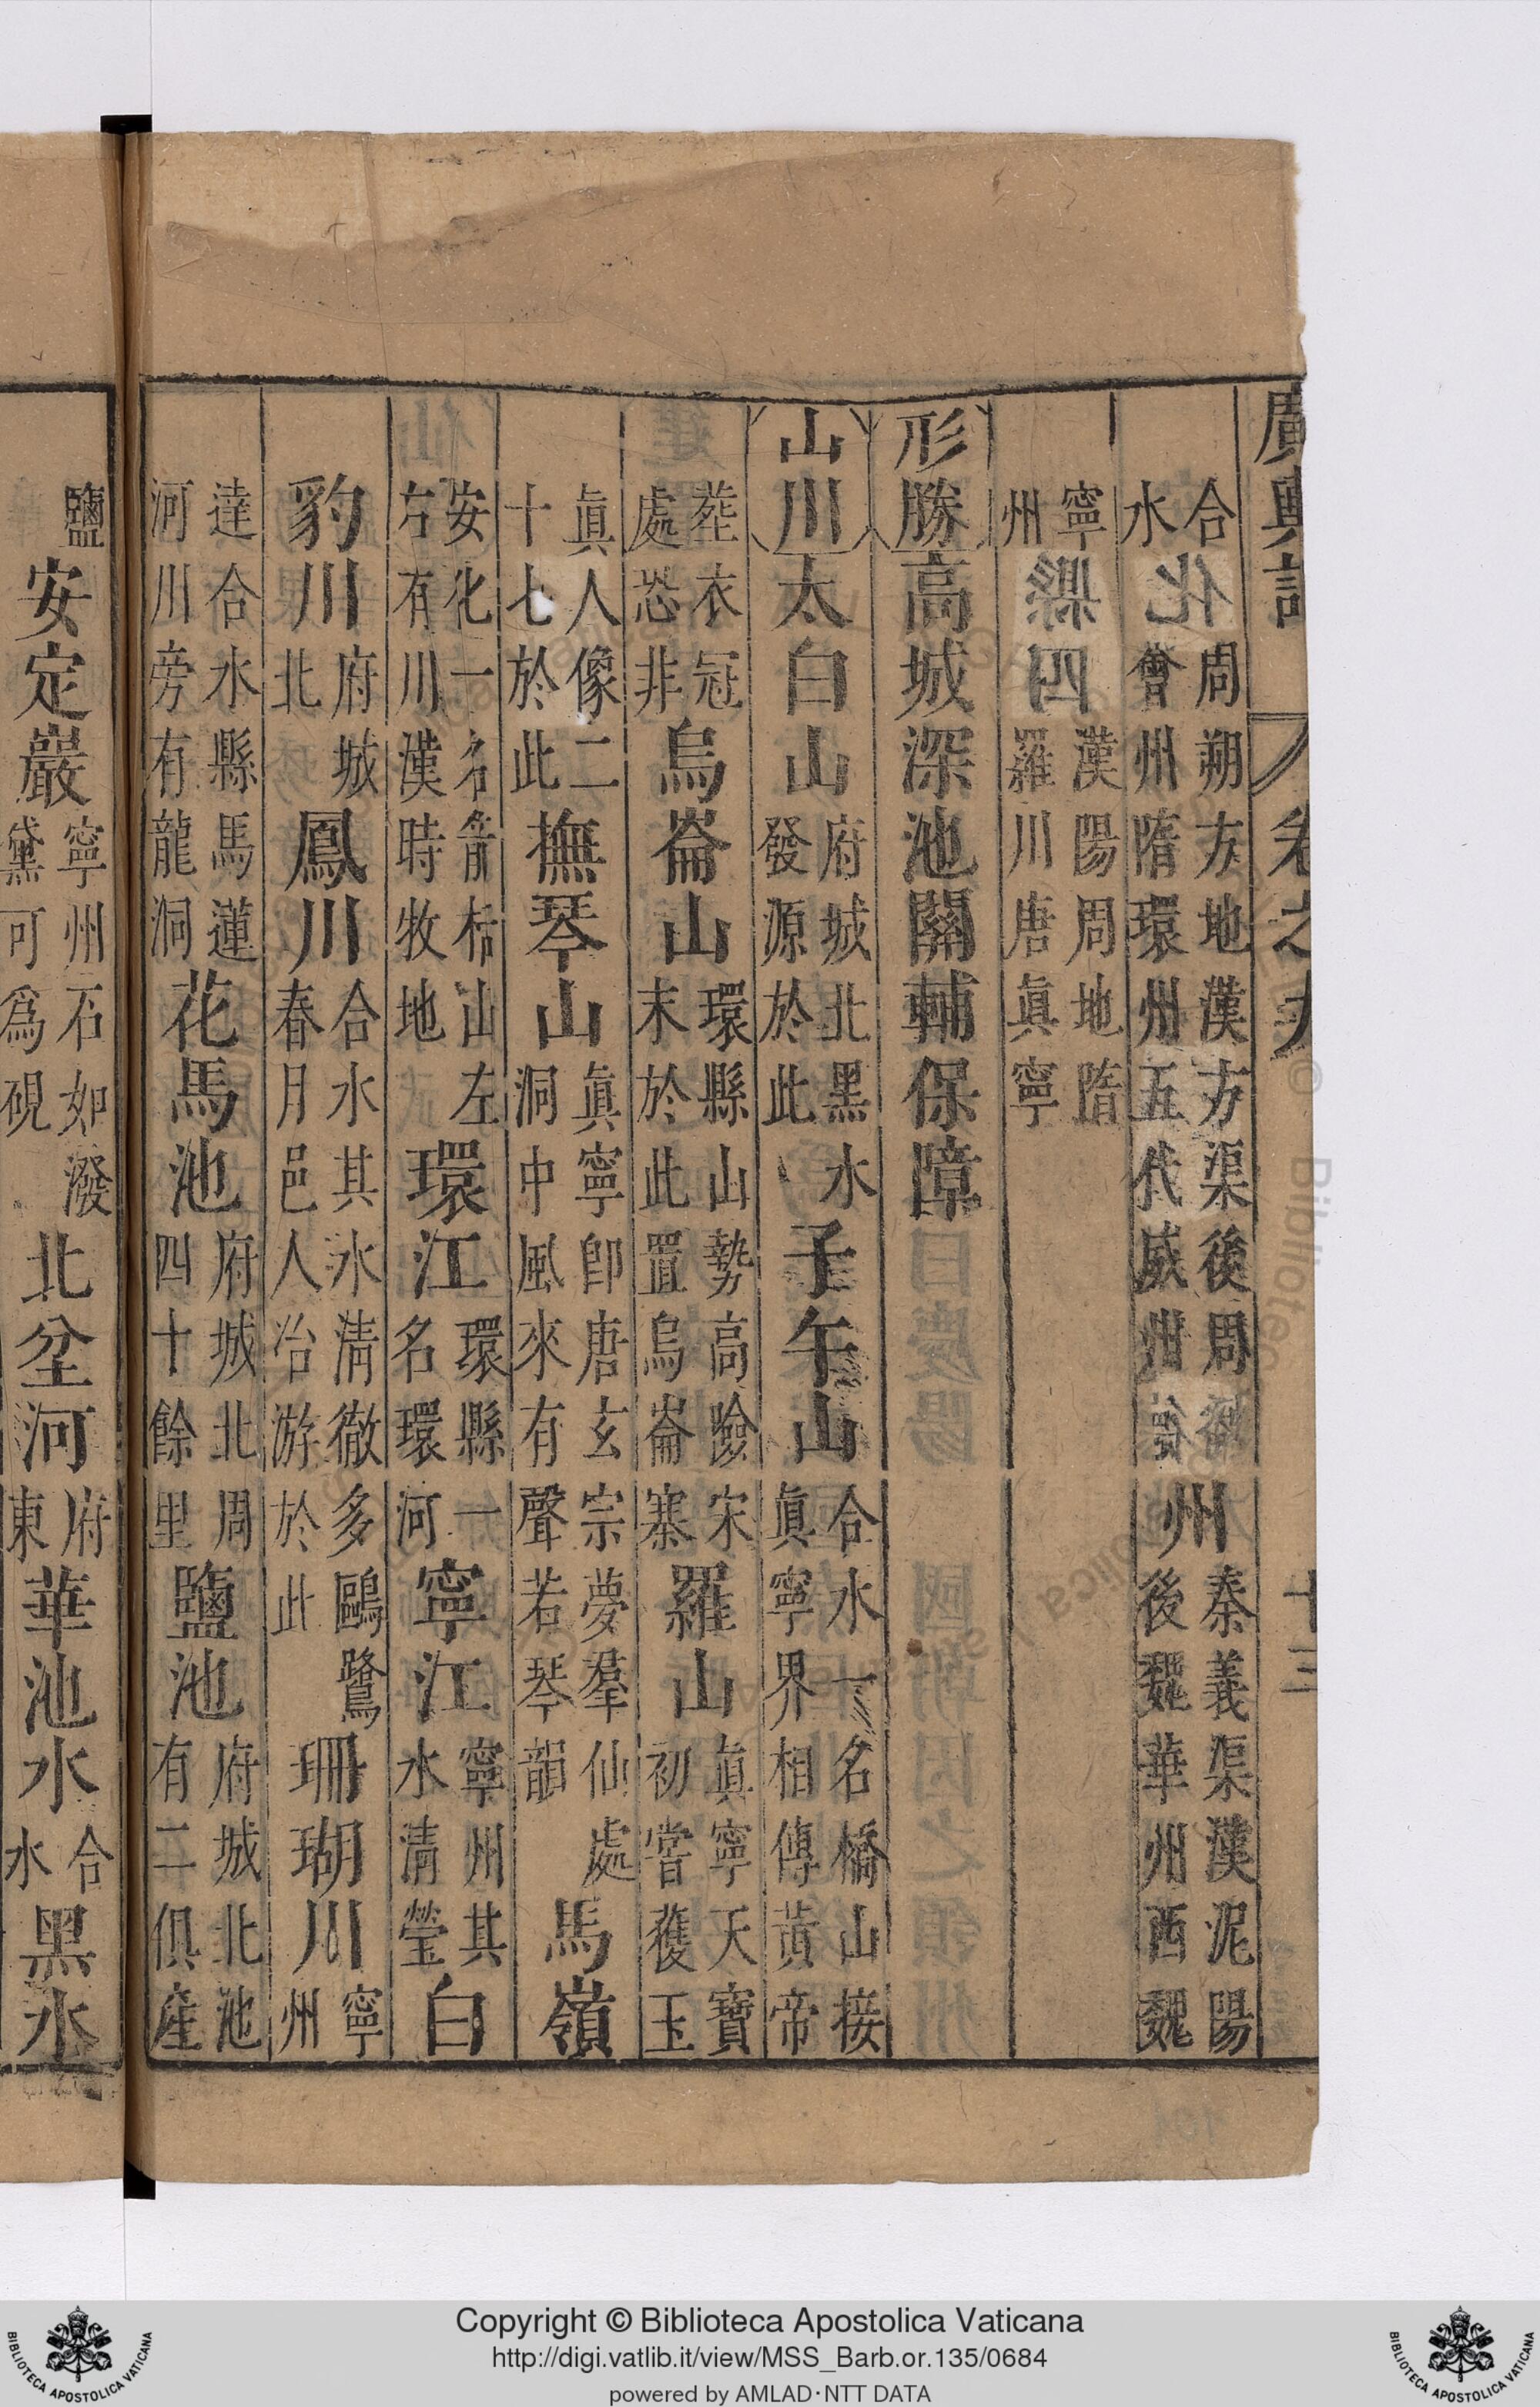 廣輿記 卷之九 十三
合水 周朔方地漢方渠後周會州隋環州五代威州 州 秦義渠漢泥陽後魏華州西魏
寧州 漢陽周地隋羅川唐眞寧
形勝 高城深池關輔保障
山川 太白山 府城北黑水發源於此 子午山 合水一名橋山接眞寧界相傳黃帝
葬衣冠處恐非 烏崙山 環縣山勢高險宋末於此置烏崙寨 羅山 眞寧天寶初嘗獲玉
眞人像二十七於此 撫琴山 眞寧卽唐玄宗夢羣仙處洞中風來有聲若琴韻 馬嶺
安化一名箭栝山左右有川漢時牧地 環江 環縣一名環河 寧江 寧州其水清瑩 白
豹川 府城北 鳳川 合水其水清徹多鷗鷺春月邑人冶游於此 珊瑚川 寧州
達合水縣馬蓮河川旁有龍洞 花馬池 府城北周四十餘里 鹽池 府城北池有二俱產
鹽 安定巖 寧州石如潑黛可爲硯 北坌河 府東 華池水 合水 黑水
Copyright © Biblioteca Apostolica Vaticana
http://digi.vatlib.it/view/MSS_Barb.or.135/0684
powered by AMLAD·NTT DATA
BIBLIOTECA APOSTOLICA VATICANA
BIBLIOTECA APOSTOLICA VATICANA